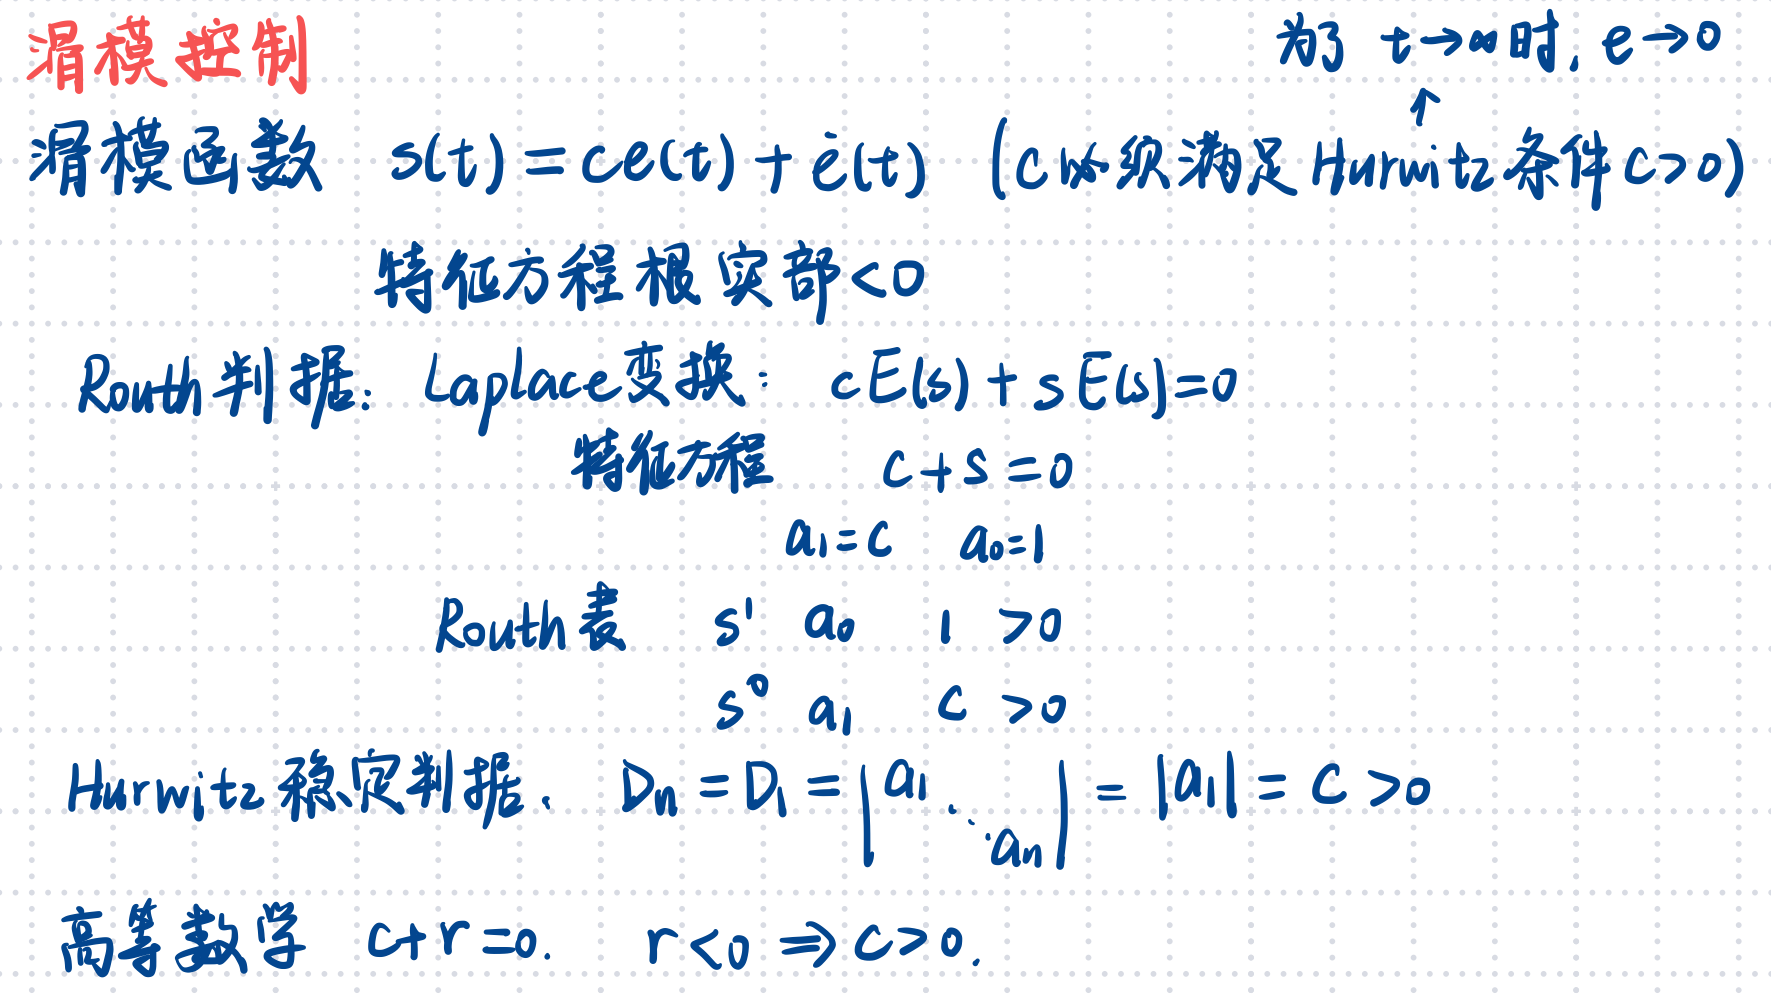 滑模控制
为了 t→∞时, e→0
↑
滑模函数 s(t) = ce(t) + ė(t) (c必须满足Hurwitz条件 c>0)
特征方程根实部<0
Routh判据: Laplace变换: cE(s) + sE(s)=0
特征方程 c+s=0
a₁=c a₀=1
Routh表 s¹ a₀ 1 >0
s⁰ a₁ c >0
Hurwitz稳定判据. Dₙ = D₁ = |a₁ ⋱ aₙ| = |a₁| = c >0
高等数学 c+r=0. r<0 ⇒ c>0.